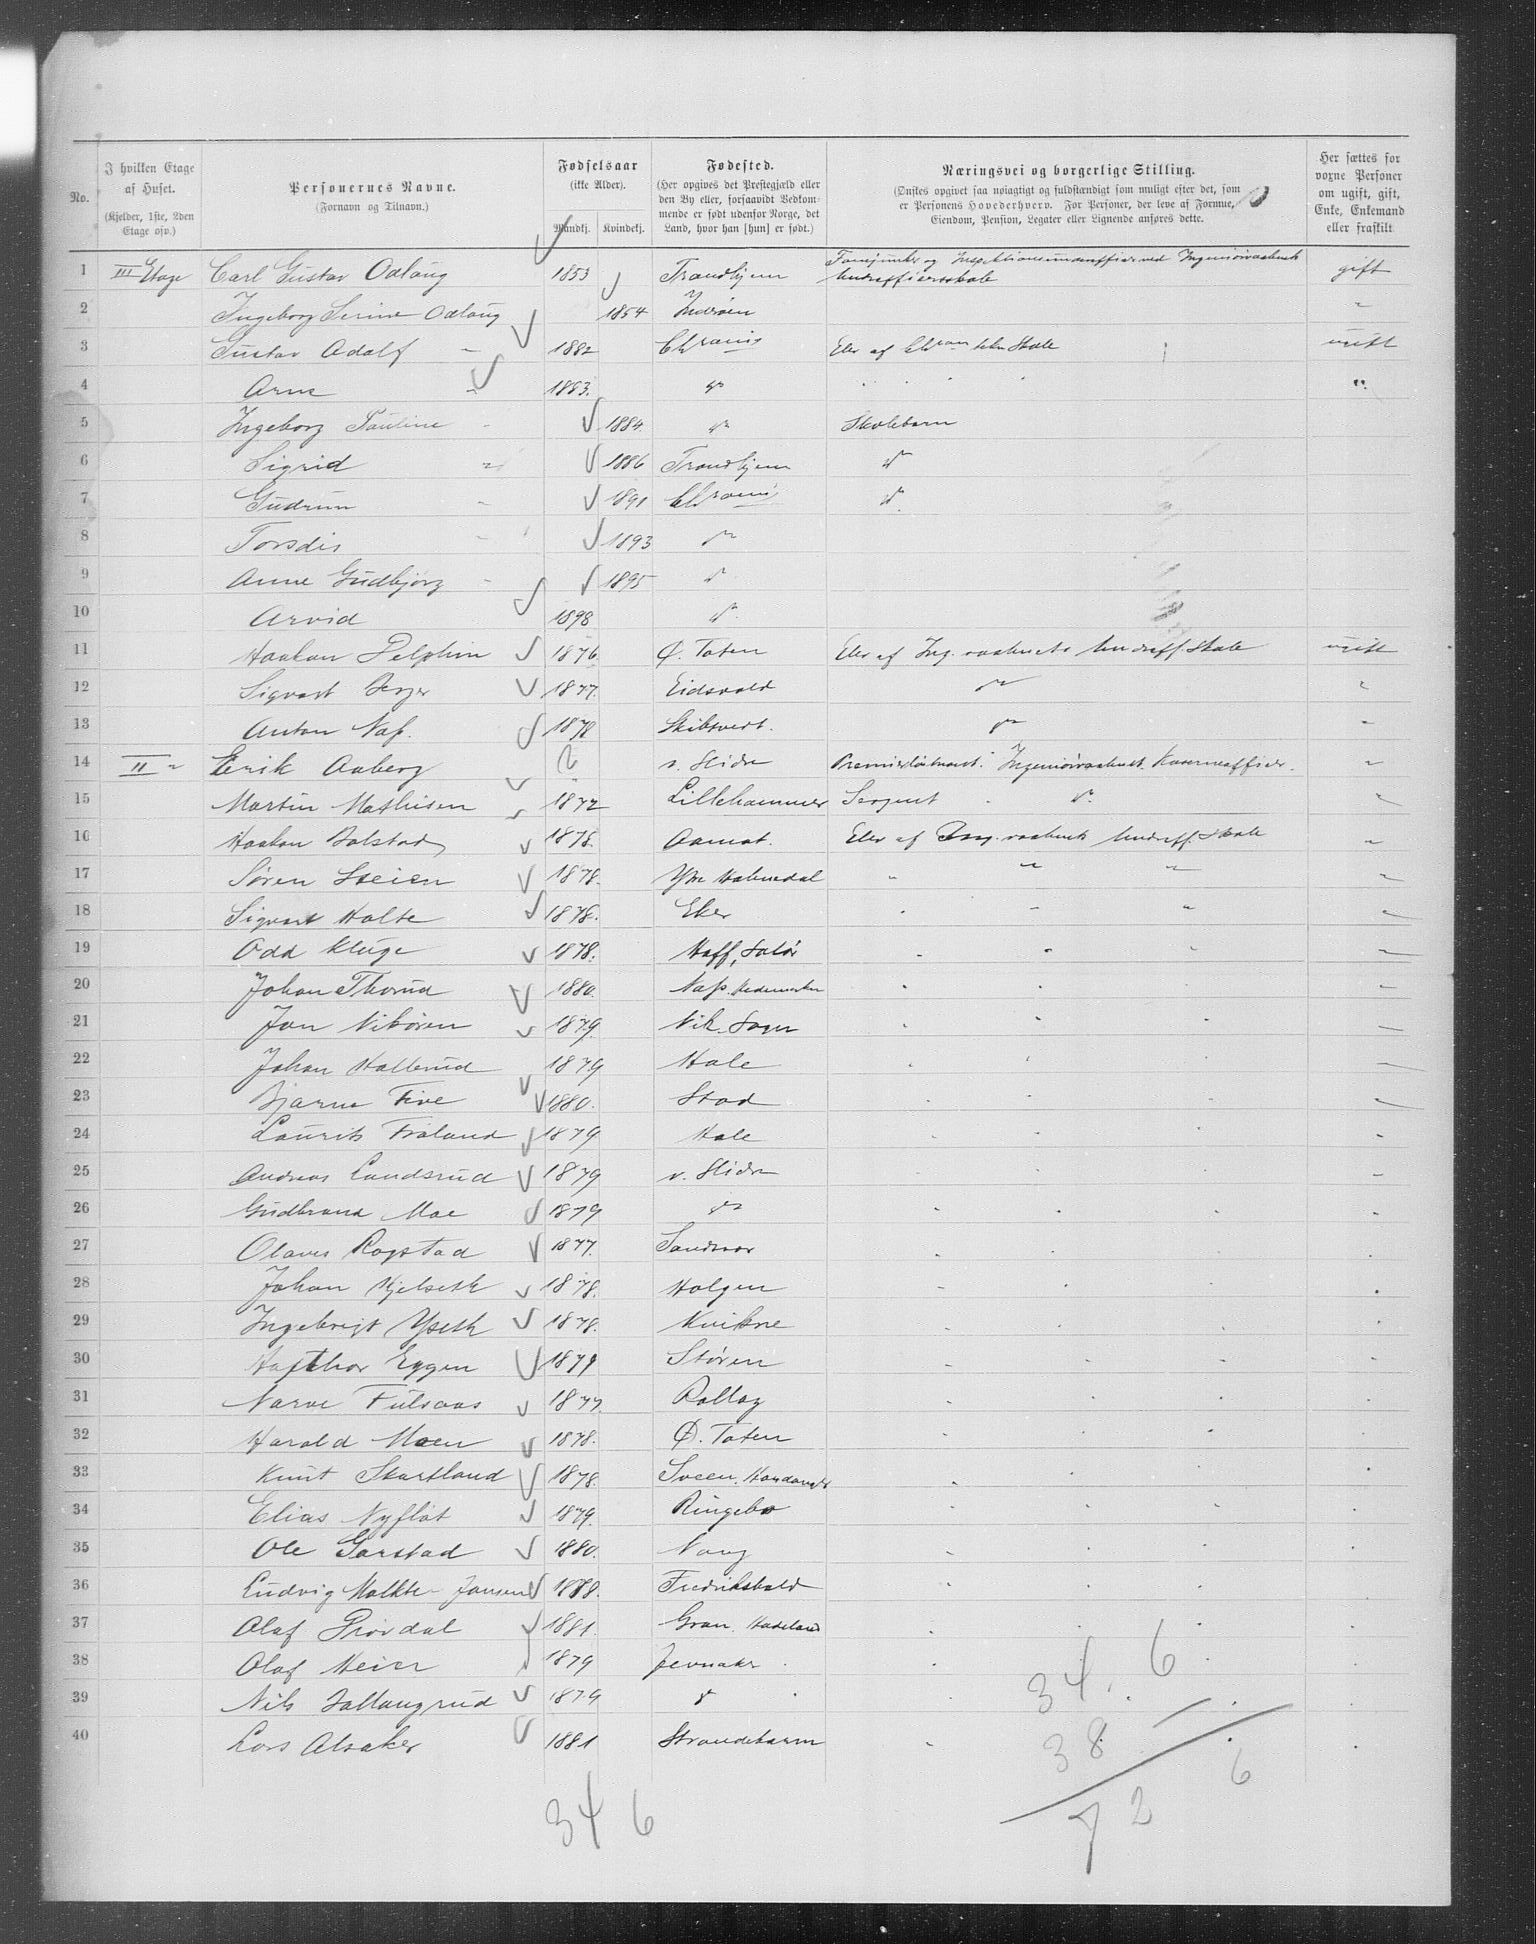 No.
I hvilken Etage af Huset.
(Kjelder, 1ste, 2den Etage osv.)
Personernes Navne.
(Fornavn og Tilnavn.)
Fødselsaar
(ikke Alder).
Mandkj. Kvindekj.
Fødested.
(Her opgives det Prestegjæld eller den By eller, forsaavidt Vedkommende er født udenfor Norge, det Land, hvor han [hun] er født.)
Næringsvei og borgerlige Stilling.
(Ønskes opgivet saa nøiagtigt og fuldstændigt som muligt efter det, som er Personens Hovederhverv. For Personer, der leve af Formue, Eiendom, Pension, Legater eller Lignende anføres dette.
Her sættes for voxne Personer om ugift, gift, Enke, Enkemand eller fraskilt
1 III Etage Carl Gustav Aalaug 1853 Trondhjem Fanejunker og Inspektionsunderofficer ved Ingeniørvaabnets Underofficersskole gift
2 Ingeborg Serine Aalaug 1854 Inderøen "
3 Gustav Adolf " 1882 Chrania Elev af Chran tekn Skole ugift
4 Arne " 1883. do " " " "
5 Ingeborg Pauline " 1884 do Skolebarn
6 Sigrid " 1886 Trondhjem do
7 Gudrun " 1891 Chrania do
8 Tordis " 1893 do
9 Anne Gudbjørg " 1895 do
10 Arvid 1898 do
11 Haakon Delphin 1876 Ø. Toten Elev af Ing. vaabnets Underoff. Skole ugift
12 Sigvart Berger 1877. Eidsvold do "
13 Anton Næs. 1878 Skibtvedt. do "
14 II " Erik Aaberg ? v. Slidre Premierløitnant. Ingeniørvaabnet. Kaserneofficer. "
15 Martin Mathisen 1872 Lillehammer Sergent " do "
16 Haakon Bolstad 1878. Aamot. Elev af Ing. vaabnets Underoff. Skole "
17 Søren Steien 1878. Ytre Holmedal " " " "
18 Sigvart Holte 1878. Eker " " " "
19 Odd Kluge 1878. Hoff, Solør " " "
20 Johan Thorud 1880. Næs. Hedemarken " " " "
21 Jon Nibøren 1879. Vik. Sogn " " " "
22 Johan Hallerud 1879 Hole " " " "
23 Bjarne Five 1880. Stod " " " "
24 Laurits Frøland 1879 Hole " " " "
25 Andreas Landsrud 1879 v. Slidre " " " "
26 Gudbrand Moe 1879 do " " " "
27 Olaves Rogstad 1877. Sandsvær " " " "
28 Johan Kjelseth 1878. Holgen " " "
29 Ingebrigt Yseth 1878. Kvikne " " " "
30 Hafthor Eggen 1879 Støren " " " "
31 Narve Fulsaas 1877. Rollag " " " "
32 Harald Moen 1878. Ø. Toten " " " "
33 Knut Skartland 1878. Sveen. Hardanger " " " "
34 Elias Nyfløt 1879. Ringebo " " " "
35 Ole Garstad 1880. Vang " " " "
36 Ludvig Malthe-Jansen 1878. Fredrikshald " " " "
37 Olaf Prøvdal 1881. Gran. Hadeland " " " "
38 Olaf Meier 1879 Jevnaker " " "
39 Nils Ballangrud 1879 do " " "
40 Lars Alsaker 1881 Strandebarm " " "
34 6
34. 6
38 –
72 6